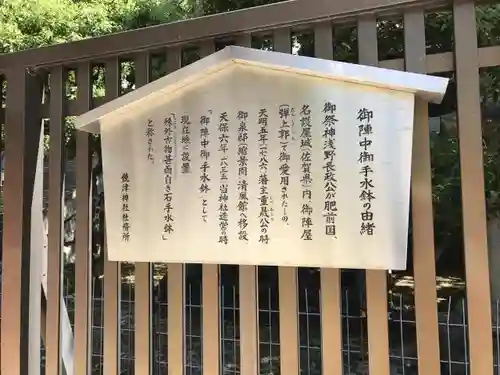 御陣中御手水鉢の由緒
御祭神浅野長政公が肥前国
名護屋城(佐賀県)内、御陣屋
(弾上郭)で御愛用されたもの。
天明五年(一七八六)藩主重晟公の時
御泉邸(縮景園)清風館へ移設
天保六年(一八三五)当神社造営の時
「御陣中御手水鉢」として
現在地に設置
「殊外古物甚面白き石手水鉢」
と称された。
饒津神社社務所